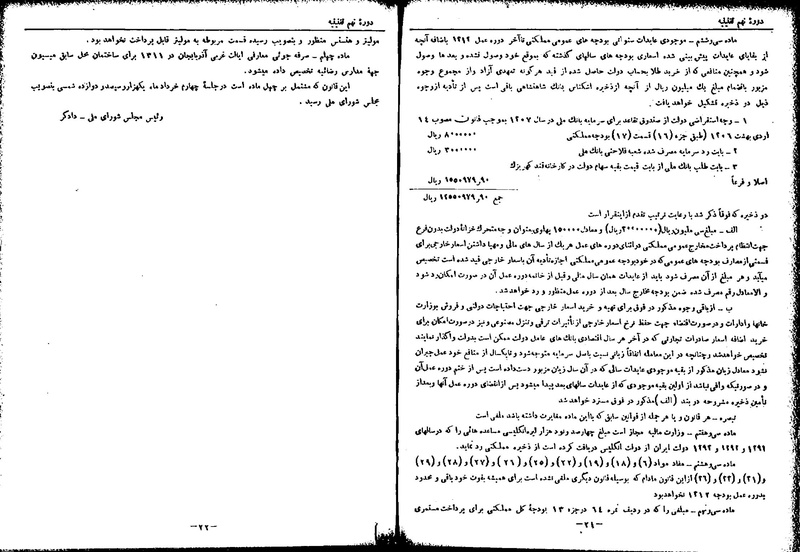 دوره نهم تقنینیه
ماده سی‌وششم – موجودی عایدات سنواتی بودجه های عمومی مملکتی تا آخر دوره عمل ۱۳۱۲ باضافه آنچه
از بقایای عایدات پیش بینی شده اسعاری بودجه های سالهای گذشته که بموقع خود وصول نشده و بعدها وصول
شود و همچنین منافعی که از خرید طلا بحساب دولت حاصل شده از قید هر گونه تعهدی آزاد و از مجموع وجوه
مزبور بانضمام مبلغ یک میلیون ریال از آنچه از ذخیره اسکناس بانک شاهنشاهی باقی است پس از تأدیه از وجوه
ذیل در ذخیره تشکیل خواهد یافت
۱ – وجه استقراضی دولت از صندوق تقاعد برای سرمایه بانک ملی در سال ۱۳۰۷ بموجب قانون مصوب ۱۴
اردی بهشت ۱۳۰۶ (طبق جزء (۱۶) قسمت (۱۷) بودجه مملکتی ۸۰۰۰۰۰۰ ریال
۲ – بابت رد سرمایه مصرف شده شعبه فلاحتی بانک ملی ۳۰۰۰۰۰۰ ریال
۳ – بابت طلب بانک ملی از بابت قیمت بقیه سهام دولت در کارخانه قند کهریزک
اصلا و فرعاً ۱۵۵۰۹۷۹٫۹۰ ریال
جمع ۱۲۵۵۰۹۷۹٫۹۰ ریال
دو ذخیره که فوقاً ذکر شد با رعایت ترتیب تقدم از اینقرار است
الف – مبلغ سی ملیون ریال (۳۰۰۰۰۰۰۰ ریال) و معادل ۱۵۰۰۰۰ پهلوی بعنوان وجه متحرک خزانه دولت بدون فرع
جهت انتظام پرداخت مخارج عمومی مملکتی در اثنای دوره های عمل هر یک از سال های مالی و مهیا داشتن اسعار خارجی برای
قسمتی از مصارف بودجه های عمومی که در خود بودجه عمومی مملکتی اجازه تأدیه آن باسعار خارجی قید شده است تخصیص
میآبد و هر مبلغ از آن مصرف شود باید از عایدات همان سال مالی و قبل از خاتمه دوره عمل آن در صورت امکان رد شود
و الا معادل رقم مصرف شده ضمن بودجه مخارج سال بعد از دوره عمل منظور و رد خواهد شد.
ب – از باقی وجوه مذکور در فوق برای تهیه و خرید اسعار خارجی جهت احتیاجات دولتی و فروش بوزارت
خانها و ادارات و در صورت اقتضاء جهت حفظ نرخ اسعار خارجی از تأثیرات ترقی و تنزل مصنوعی و نیز در صورت امکان برای
خرید اضافه اسعار صادرات تجارتی که در آخر هر سال اقتصادی بانک های عامل دولت ممکن است بدولت واگذار نمایند
تخصیص خواهد شد و چنانچه در این معامله اتفاقاً زیانی نسبت باصل سرمایه متوجه شود و تا یکسال از منافع خود عمل جبران
نشود معادل زیان مذکور از بقیه موجودی عایدات سالی که در آن سال زیان مزبور دست داده است پس از ختم دوره عمل آن
و در صورتیکه وافی نباشد از اولین بقیه موجودی که از عایدات سالهای بعد پیدا میشود پس از انقضای دوره عمل آنها و بعد از
تأمین ذخیره مشروحه در بند (الف) مذکور در فوق مسترد خواهد شد
تبصره – هر قانون و یا هر جمله از قوانین سابق که با این ماده مغایرت داشته باشد ملغی است
ماده سی‌وهفتم – وزارت مالیه مجاز است مبلغ چهارصد و نود هزار لیره انگلیسی مساعده هائی را که در سالهای
۱۲۹۱ و ۱۲۹۲ و ۱۲۹۳ دولت ایران از دولت انگلیس دریافت کرده است از ذخیره مملکتی رد نماید.
ماده سی‌وهشتم – مفاد مواد (۶) و (۱۸) و (۱۹) و (۲۲) و (۲۵) و (۲۶) و (۲۷) و (۲۸) و (۲۹)
و (۳۱) و (۳۳) و (۳۶) از این قانون مادام که بوسیله قانون دیگری ملغی نشده است برای همیشه بقوت خود باقی و محدود
بدوره عمل بودجه ۱۳۱۲ نخواهد بود
ماده سی‌ونهم – مبلغی را که در ردیف نمره ۱۴ در جزء ۱۳ بودجه کل مملکتی برای پرداخت مستمری
–۲۱–
دوره نهم تقنینیه
مولیتر و هنسنس منظور و بتصویب رسیده قسمت مربوطه به مولیتر قابل پرداخت نخواهد بود.
ماده چهلم – صرفه جوئی معارفی ایالت غربی آذربایجان در ۱۳۱۱ برای ساختمان محل سابق میسیون
جهة مدارس رضائیه تخصیص داده میشود.
این قانون که مشتمل بر چهل ماده است در جلسهٔ چهارم خرداد ماه یکهزار و سیصد و دوازده شمسی بتصویب
مجلس شورای ملی رسید.
رئیس مجلس شورای ملی – دادگر
–۲۲–